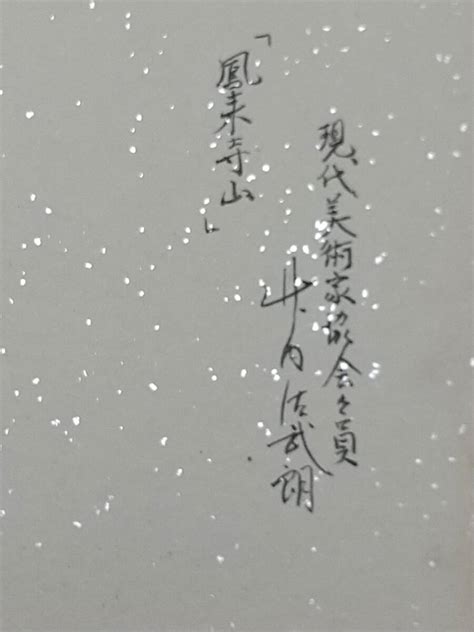 現代美術家協会々員
竹内武朗
「鳳来寺山」